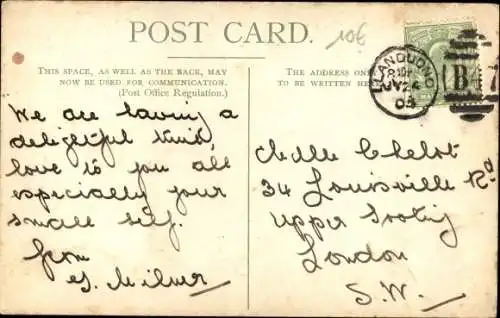 POST CARD.
106
THIS SPACE, AS WELL AS THE BACK, MAY
NOW BE USED FOR COMMUNICATION.
(Post Office Regulation.)
THE ADDRESS ONLY
TO BE WRITTEN HERE
We are having a
delightful time,
love to you all
especially your
small self.
from
G. Milner
Mdlle Chelot
34 Louisville Rd
Upper Tooting
London
S.W.
LLANDUDNO
B
7